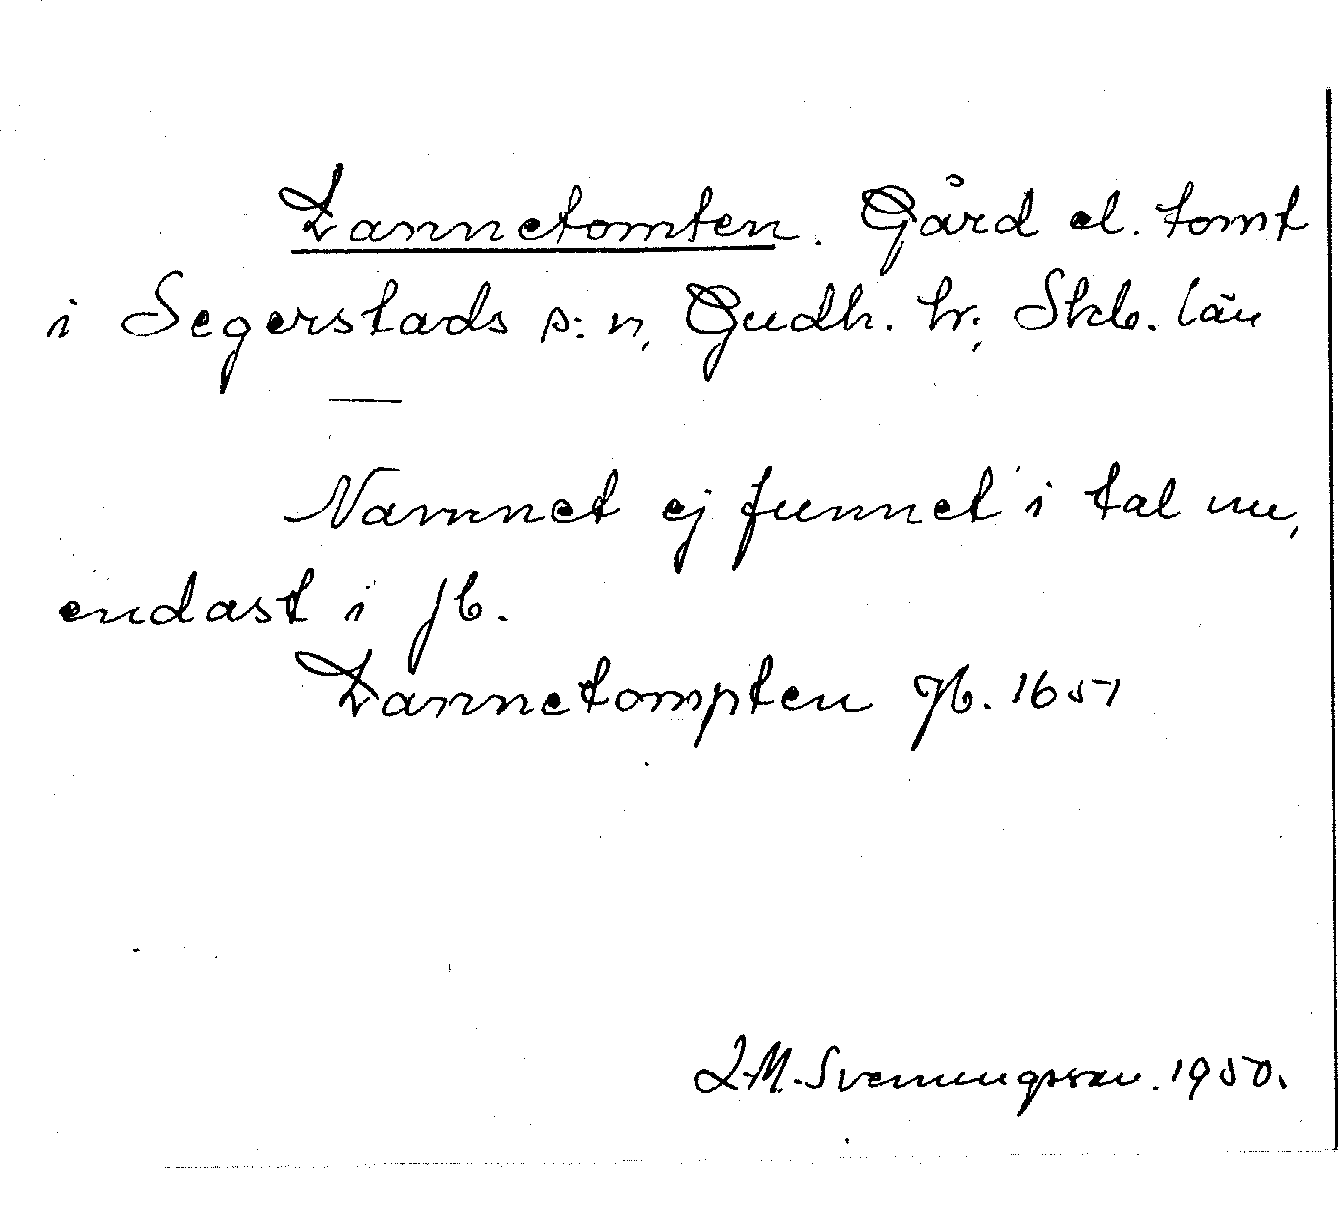 Dannetomten. Gård el. tomt
i Segerstads s:n, Gudh. hr; Skb. län
Namnet ej funnet i tal nu,
endast i jb.
Dannetompten Jb. 1651
L.M. Svenungsson. 1950.